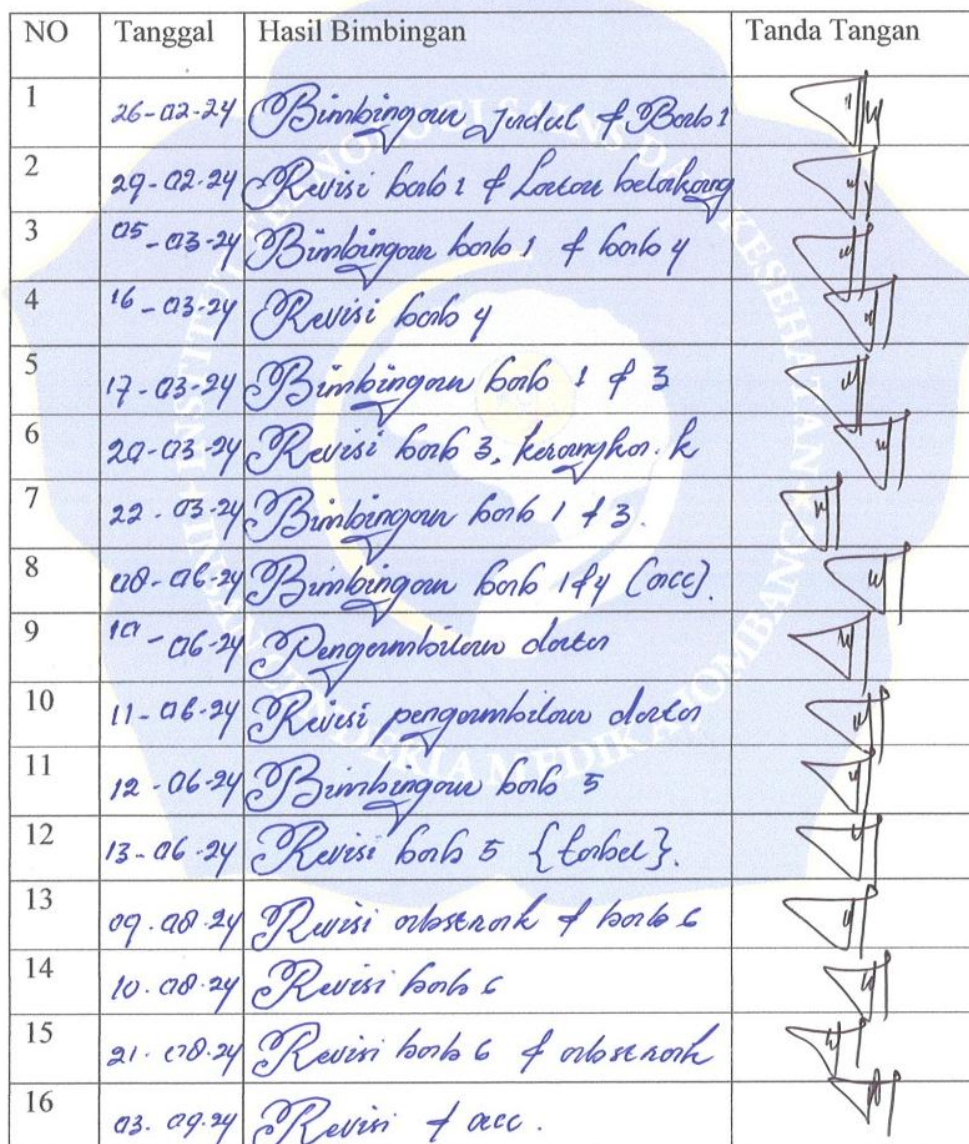 NO Tanggal Hasil Bimbingan Tanda Tangan
1 26-02-24 Bimbingan Judul & Bab 1
2 29-02-24 Revisi bab 1 & Latar belakang
3 05-03-24 Bimbingan bab 1 & bab 4
4 16-03-24 Revisi bab 4
5 17-03-24 Bimbingan bab 1 & 3
6 20-03-24 Revisi bab 3, kerangka. k
7 22-03-24 Bimbingan bab 1 & 3.
8 08-06-24 Bimbingan bab 1&4 (acc).
9 10-06-24 Pengambilan data
10 11-06-24 Revisi pengambilan data
11 12-06-24 Bimbingan bab 5
12 13-06-24 Revisi bab 5 {tabel}.
13 09.08.24 Revisi abstrak & bab 6
14 10.08.24 Revisi bab 6
15 21.08.24 Revisi bab 6 & abstrak
16 03.09.24 Revisi & acc.